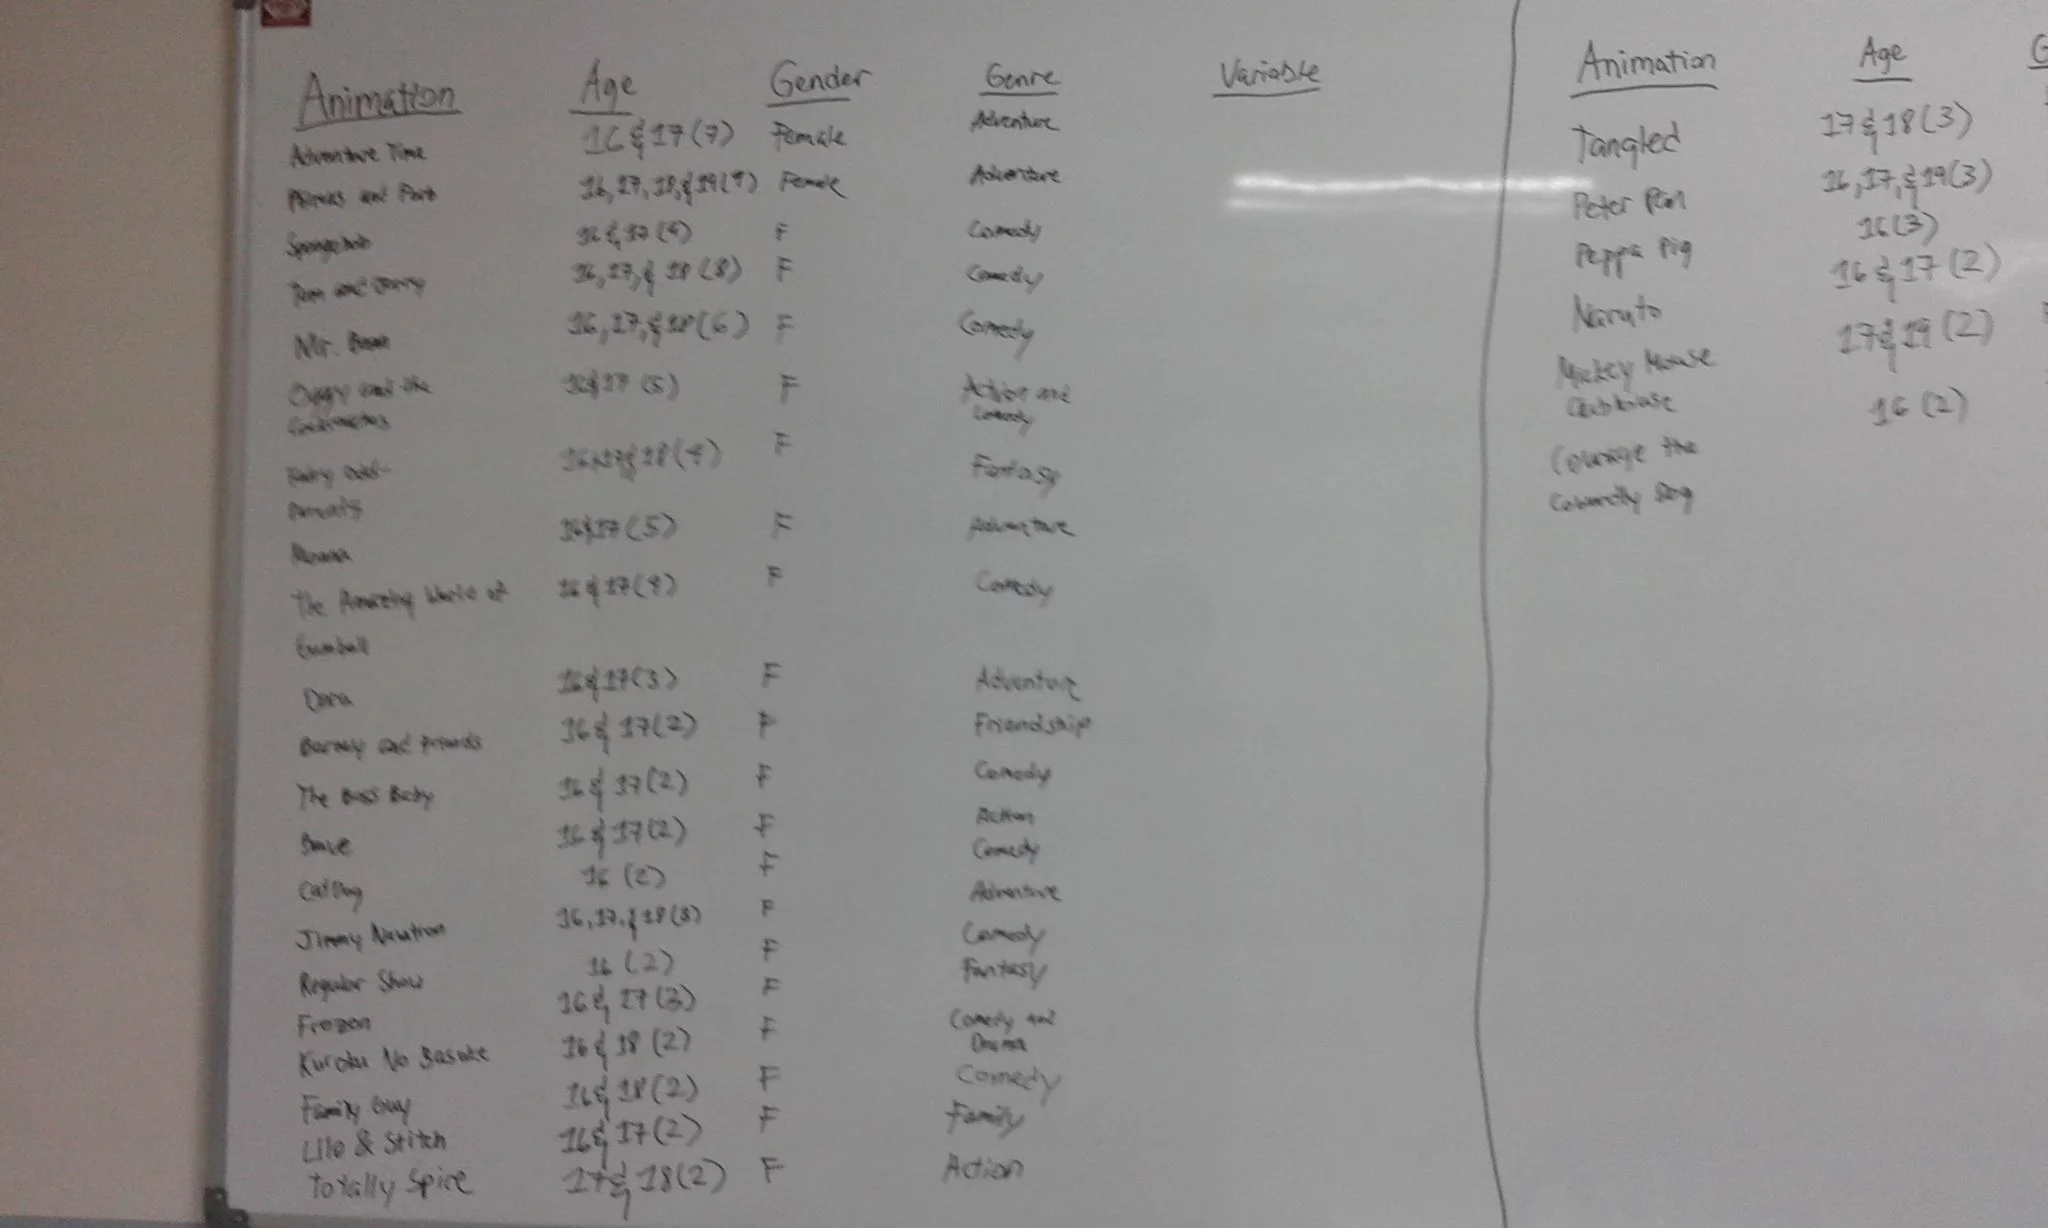 Animation Age Gender Genre Variable
Adventure Time 16 & 17 (7) Female Adventure
Phineas and Ferb 16, 17, 18, & 19 (9) Female Adventure
Spongebob 16 & 17 (9) F Comedy
Tom and Jerry 16, 17, & 18 (8) F Comedy
Mr. Bean 16, 17, & 18 (6) F Comedy
Oggy and the 16 & 17 (5) F Action and
Cockroaches Comedy
Fairy odd- 16, 17 & 18 (9) F Fantasy
Parents
Moana 16 & 17 (5) F Adventure
The Amazing World of 16 & 17 (9) F Comedy
Gumball
Dora 16 & 17 (3) F Adventure
Barney and Friends 16 & 17 (2) F Friendship
The Boss Baby 16 & 17 (2) F Comedy
16 & 17 (2) F Action
CatDog 16 (2) F Comedy
Jimmy Neutron 16, 17, & 18 (3) F Adventure
Regular Show 16 (2) F Comedy
Frozen 16 & 17 (3) F Fantasy
Kuroku No Basuke 16 & 18 (2) F Comedy and
Drama
Family Guy 16 & 18 (2) F Comedy
Lilo & Stitch 16 & 17 (2) F Family
Totally Spice 17 & 18 (2) F Action
Animation Age G
Tangled 17 & 18 (3)
Peter Pan 16, 17, & 19 (3)
Peppa Pig 16 (3)
Naruto 16 & 17 (2)
Mickey Mouse 17 & 19 (2)
Clubhouse
Courage the 16 (2)
Cowardly Dog